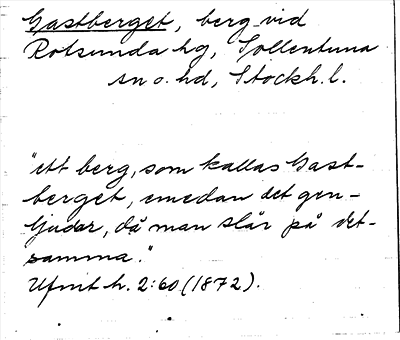 Gastberget, berg vid
Rotsunda hg, Sollentuna
sn o. hd, Stockh. l.
"ett berg, som kallas Gast-
berget, emedan det gen-
ljuder, då man slår på det-
samma."
Ufmt h. 2:60 (1872).